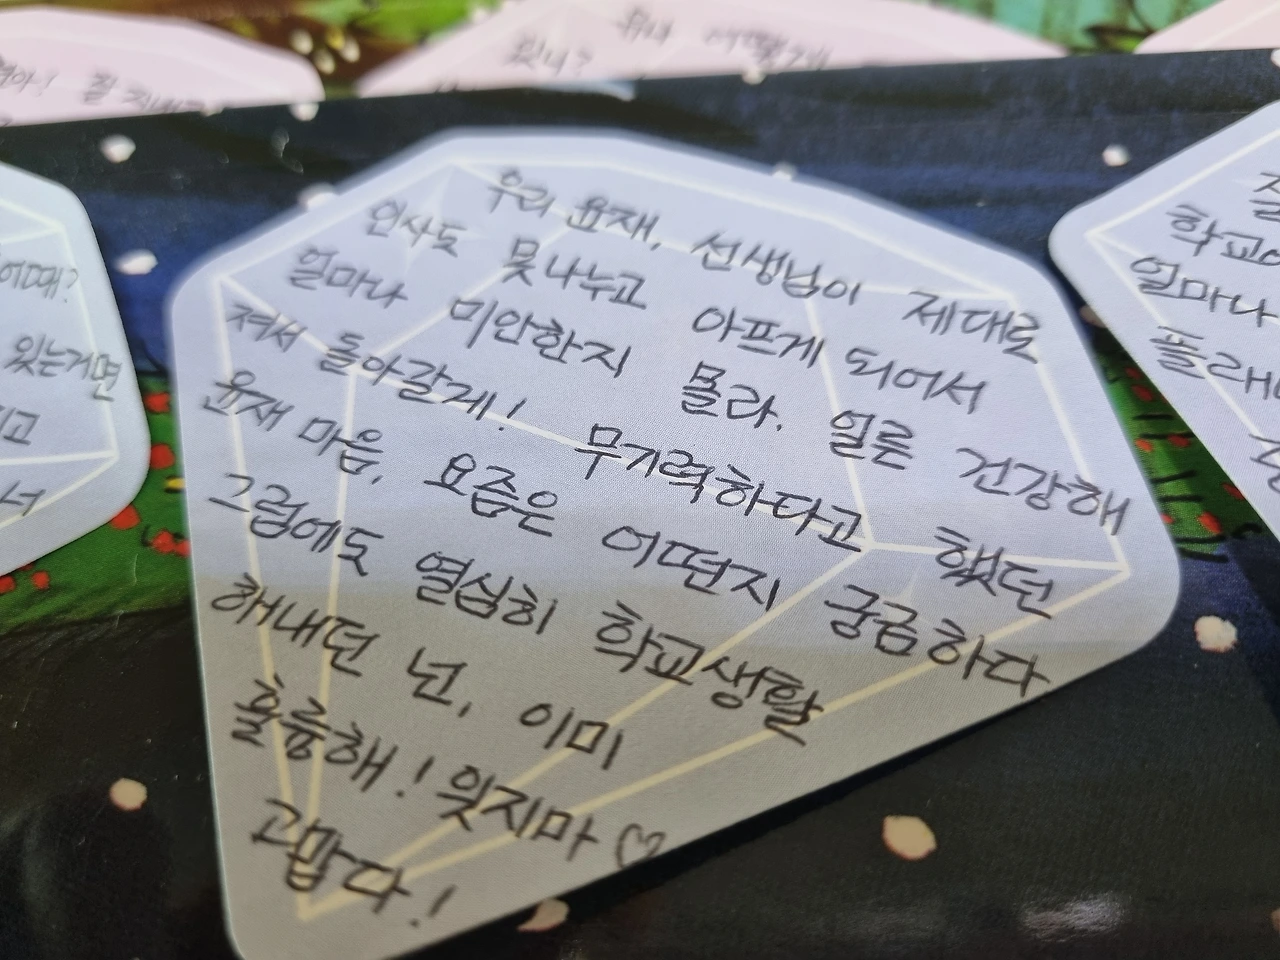 뭐니 어떻게
있니?
우리 윤재, 선생님이 제대로
인사도 못나누고 아프게 되어서
얼마나 미안한지 몰라. 얼른 건강해
져서 돌아갈게! 무기력하다고 했던
윤재 마음, 요즘은 어떤지 궁금하다
그럼에도 열심히 학교생활
해내던 넌, 이미
훌륭해! 잊지마 ♡
고맙다!
어때?
있는거면
학교
얼마나
플래